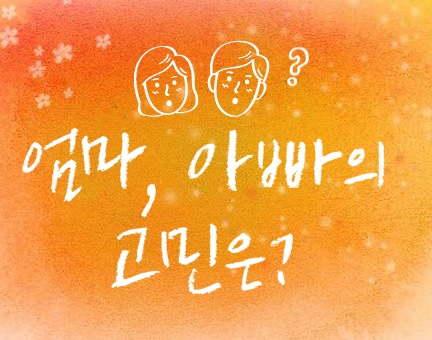 ?
엄마, 아빠의
고민은?